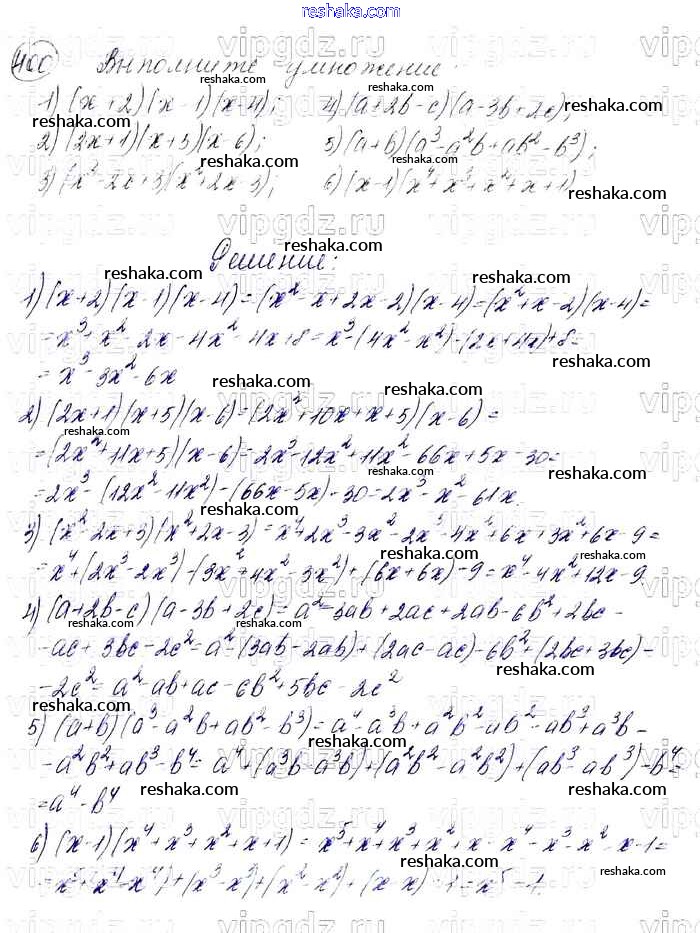 reshaka.com
400 Выполните умножение:
1) (x+2)(x-1)(x-4); 4) (a+2b-c)(a-3b+2c);
2) (2x+1)(x+5)(x-6); 5) (a+b)(a³-a²b+ab²-b³);
3) (x²-2x+3)(x²+2x-3); 6) (x-1)(x⁴+x³+x²+x+1)
Решение:
1) (x+2)(x-1)(x-4)=(x²-x+2x-2)(x-4)=(x²+x-2)(x-4)=
=x³+x²-2x-4x²-4x+8=x³-(4x²-x²)-(2x+4x)+8=
=x³-3x²-6x
2) (2x+1)(x+5)(x-6)=(2x²+10x+x+5)(x-6)=
=(2x²+11x+5)(x-6)=2x³-12x²+11x²-66x+5x-30=
=2x³-(12x²-11x²)-(66x-5x)-30=2x³-x²-61x
3) (x²-2x+3)(x²+2x-3)=x⁴+2x³-3x²-2x³-4x²+6x+3x²+6x-9=
=x⁴+(2x³-2x³)-(3x²+4x²-3x²)+(6x+6x)-9=x⁴-4x²+12x-9
4) (a+2b-c)(a-3b+2c)=a²-3ab+2ac+2ab-6b²+2bc-
-ac+3bc-2c²=a²-(3ab-2ab)+(2ac-ac)-6b²+(2bc+3bc)-
-2c²=a²-ab+ac-6b²+5bc-2c²
5) (a+b)(a³-a²b+ab²-b³)=a⁴-a³b+a²b²-ab³+a³b-
-a²b²+ab³-b⁴=a⁴+(a³b-a³b)+(a²b²-a²b²)+(ab³-ab³)-b⁴=
=a⁴-b⁴
6) (x-1)(x⁴+x³+x²+x+1)=x⁵+x⁴+x³+x²+x-x⁴-x³-x²-x-1=
=x⁵+(x⁴-x⁴)+(x³-x³)+(x²-x²)+(x-x)-1=x⁵-1.